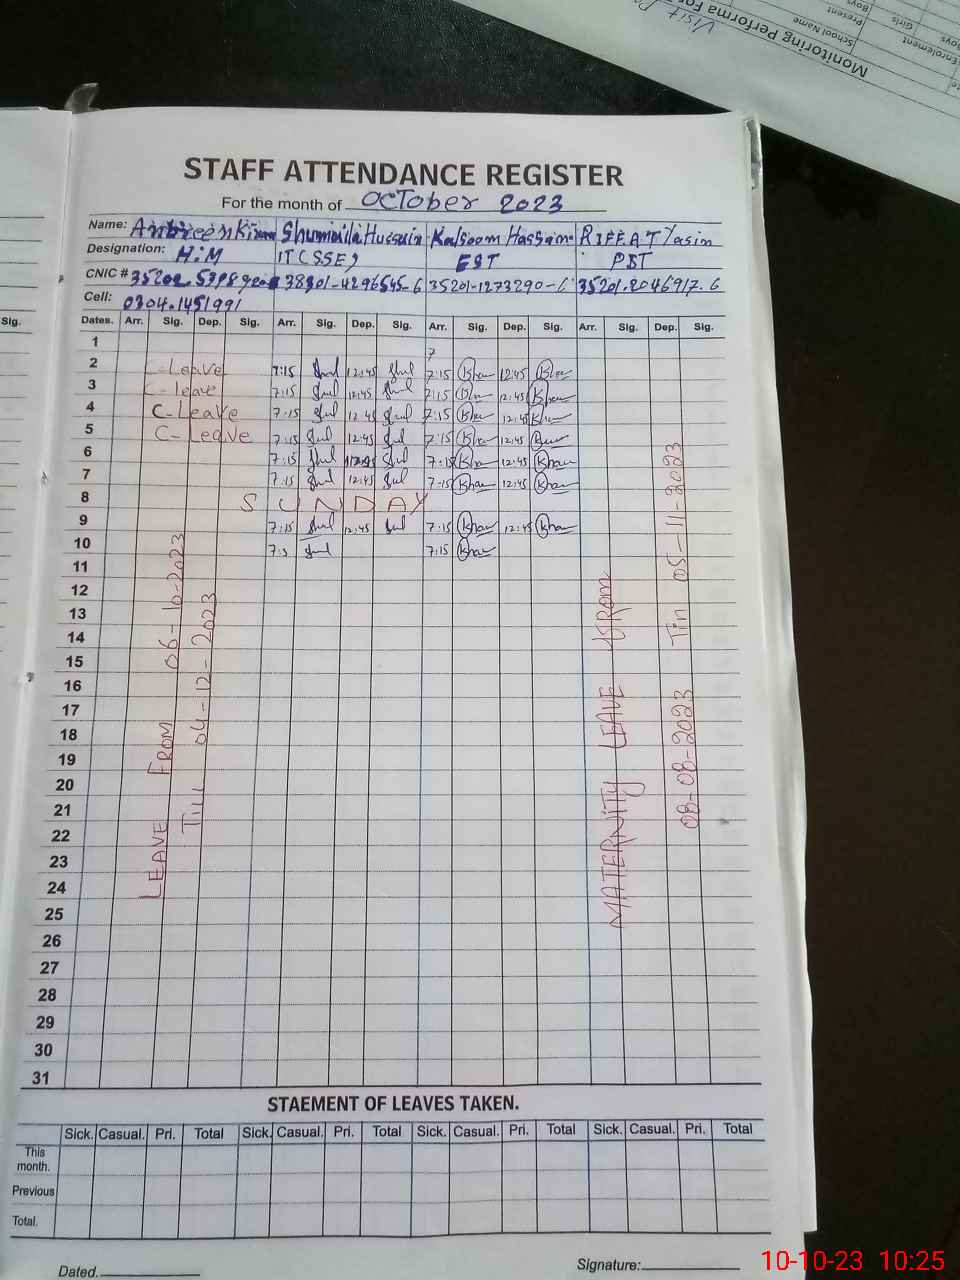 Monitoring Performa
School Name
Present
Enrolement
Girls
Boys
Visit
Sig.
STAFF ATTENDANCE REGISTER
For the month of OCTober 2023
Name: Ambreen Kiran Shumaila Hussain Kalsoom Hassan RIFFAT Yasin
Designation: H.M IT(SSE) EST PST
CNIC # 38301-4296545-6 35201-1273290-6 35201.2046917.6
Cell: 0304.1451991
Dates. Arr. Sig. Dep. Sig. Arr. Sig. Dep. Sig. Arr. Sig. Dep. Sig. Arr. Sig. Dep. Sig.
1
2 C-Leave 7:15 12:45 7:15 12:45
3 C-leave 7:15 12:45 7:15 12:45
4 C-Leave 7:15 12:45 7:15 12:45
5 C-Leave 7:15 12:45 7:15 12:45
6 7:15 12:45 7:15 Khan 12:45 Khan
7 7:15 12:45 7:15 Khan 12:45 Khan
8 SUNDAY
9 7:15 12:45 7:15 Khan 12:45 Khan
10 7:15 Khan
11
12
13
14
15
16
17
18
19
20
21
22
23
24
25
26
27
28
29
30
31
LEAVE FROM 06-10-2023
Till 04-12-2023
MATERNITY LEAVE FROM
08-08-2023 Till 05-11-2023
STAEMENT OF LEAVES TAKEN.
Sick. Casual. Pri. Total Sick. Casual. Pri. Total Sick. Casual. Pri. Total Sick. Casual. Pri. Total
This
month.
Previous
Total.
Dated. Signature:
10-10-23 10:25